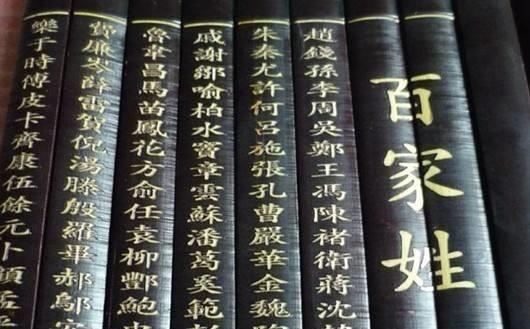 百家姓
趙錢孫李周吳鄭王馮陳褚衛蔣沈
朱秦尤許何呂施張孔曹嚴華金魏
戚謝鄒喻柏水竇章雲蘇潘葛奚範彭
魯韋昌馬苗鳳花方俞任袁柳酆鮑史
費廉岑薛雷賀倪湯滕殷羅畢郝鄔安
樂于時傅皮卡齊康伍餘元卜顧孟